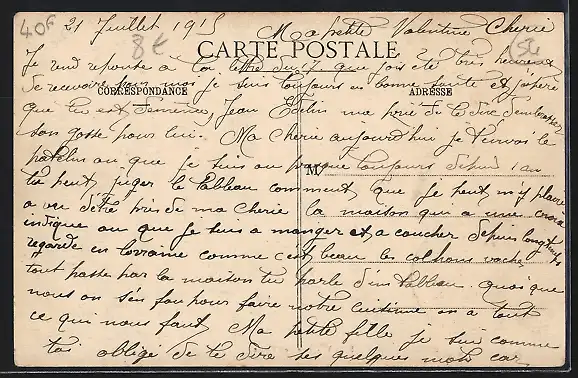 40F 21 Juillet 1915 Ma petite Valentine Cherie
8€
CARTE POSTALE
Je rend reponse à ta lettre du 17 que j'ois été tres heureux
de recevoir pour moi je suis toujours en bonne santé et j'espere
CORRESPONDANCE ADRESSE
que tu est de meme Jean ma prié de te dire d'embrasser
son gosse pour lui. Ma Cherie aujourd'hui je t'envois le
patelin ou que je suis ou presque toujours depuis
M
tu peut juger le tableau comment que je peut m'y plaire
a vu d'être pres de ma cherie la maison qui a une croix
indique ou que je suis a manger et a coucher depuis longtemps
regarde en lorraine comme c'est beau les cochons vache
tout passe par la maison tu parle d'un tableau. quoi que
nous on s'en fou pour faire notre cuisine on a tout
ce qui nous faut Ma petite fille je suis comme
toi obligé de te dire ses quelques mots car